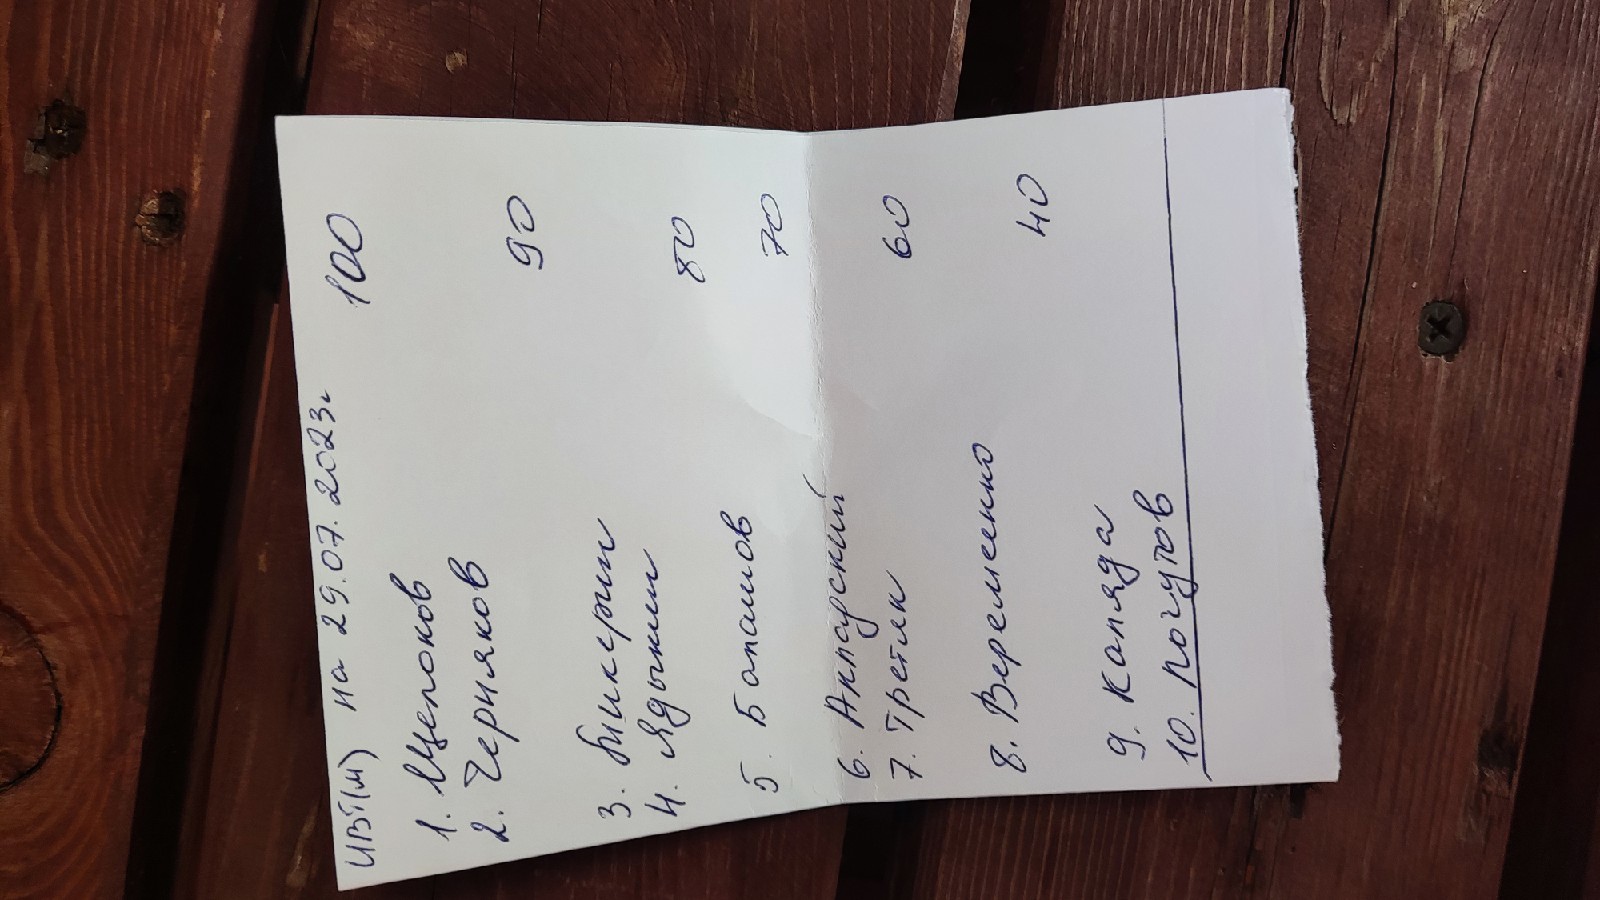 ИВТ(м) на 29.07.2023г 100
1. Щепоков
2. Черняков 90
3. Бикерин
4. Ядыкин 80
5. Баташов 70
6. Анпарский
7. Третяк 60
8. Веременко 40
9. Капяда
10. Рогутов